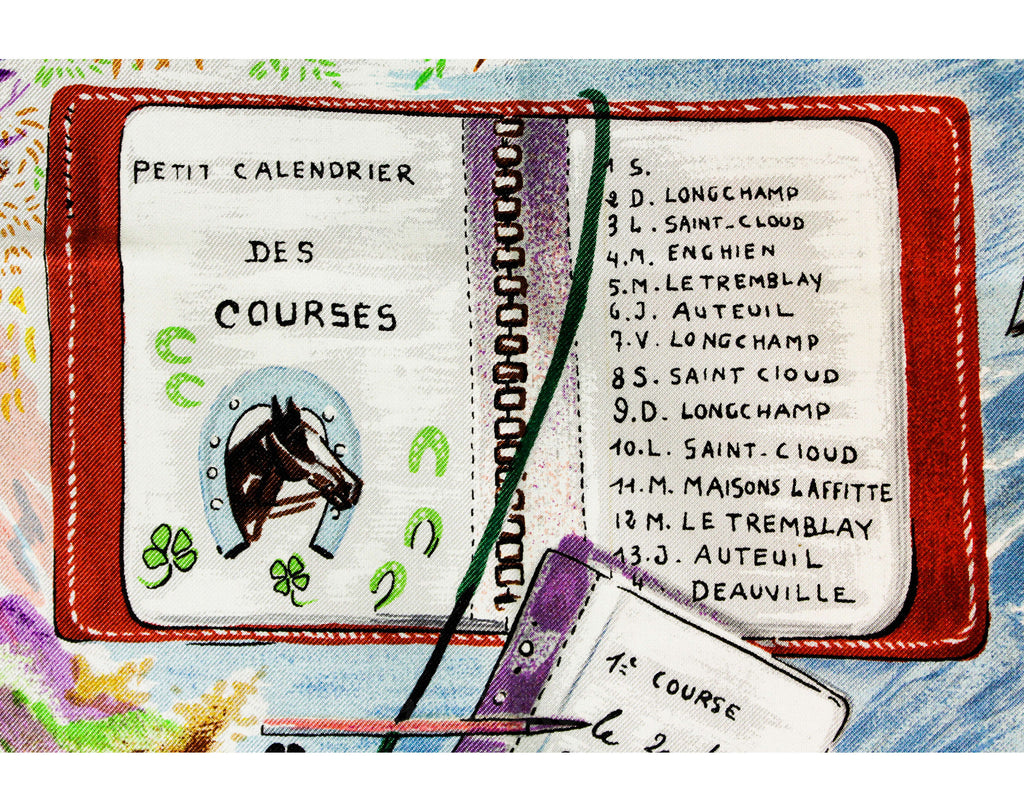 PETIT CALENDRIER
DES
COURSES
1 S.
2 D. LONGCHAMP
3 L. SAINT-CLOUD
4.M. ENGHIEN
5.M. LE TREMBLAY
6.J. AUTEUIL
7.V. LONGCHAMP
8 S. SAINT ClOUD
9.D. LONGCHAMP
10.L. SAINT-CLOUD
11.M. MAISONS LAFFITTE
12 M. LE TREMBLAY
13.J. AUTEUIL
DEAUVILLE
1=e COURSE
le